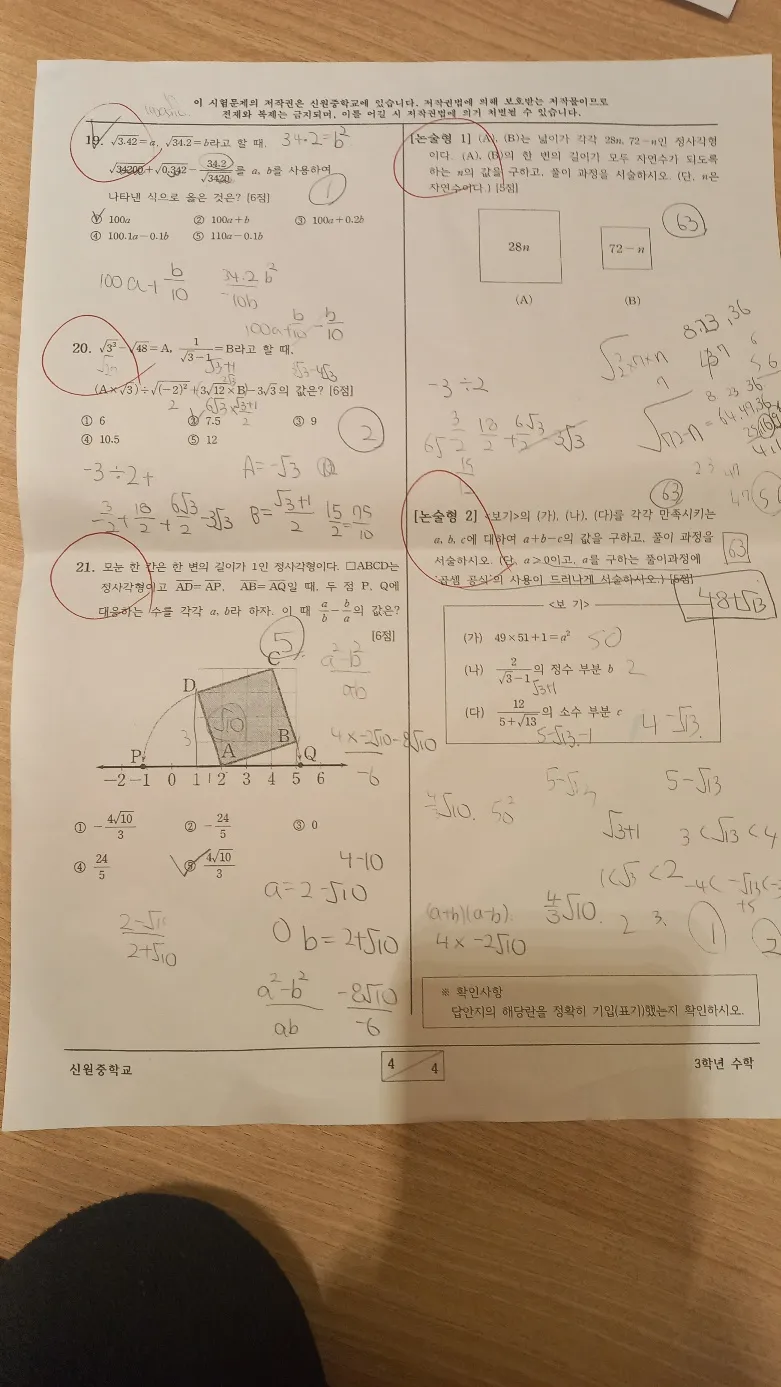 이 시험문제의 저작권은 신원중학교에 있습니다. 저작권법에 의해 보호받는 저작물이므로
전재와 복제는 금지되며, 이를 어길 시 저작권법에 의거 처벌될 수 있습니다.
19. √3.42 = a, √34.2 = b라고 할 때, 34.2 = b²
√34200 + √0.342 − 34.2/√3420 를 a, b를 사용하여
나타낸 식으로 옳은 것은? [6점] ①
① 100a ② 100a+b ③ 100a+0.2b
④ 100.1a−0.1b ⑤ 110a−0.1b
100a + b/10 34.2 b² / −10b
100a + b/10 − b/10
20. √3³ − √48 = A, 1/(√3−1) = B라고 할 때,
√3+1 3√3−4√3
(A×√3)÷√(−2)² + (3√12×B) − 3√3의 값은? [6점]
2 6√3 × (√3+1)/2
① 6 ② 7.5 ③ 9
④ 10.5 ⑤ 12 ②
−3÷2+ A = −√3
−3/2 + 18/2 + 6√3/2 − 3√3 B = (√3+1)/2 15/2 = 75/10
21. 모눈 한 칸은 한 변의 길이가 1인 정사각형이다. □ABCD는
정사각형이고 AD=AP, AB=AQ일 때, 두 점 P, Q에
대응하는 수를 각각 a, b라 하자. 이 때 a/b − b/a 의 값은?
[6점]
5
a²−b² / ab
C
D
√10
3
A
B
P
Q
−2 −1 0 1 2 3 4 5 6
4 × −2√10 −8√10 / −6
① −4√10/3 ② −24/5 ③ 0
④ 24/5 ⑤ 4√10/3
4−10
a = 2−√10
b = 2+√10
2−√10 / 2+√10
a²−b² / ab −8√10 / −6
[논술형 1] (A), (B)는 넓이가 각각 28n, 72−n인 정사각형
이다. (A), (B)의 한 변의 길이가 모두 자연수가 되도록
하는 n의 값을 구하고, 풀이 과정을 서술하시오. (단, n은
자연수이다.) [5점]
63
28n 72−n
(A) (B)
−3÷2
√72−n
63
[논술형 2] <보기>의 (가), (나), (다)를 각각 만족시키는
a, b, c에 대하여 a+b−c의 값을 구하고, 풀이 과정을
서술하시오. (단, a>0이고, a를 구하는 풀이과정에
'곱셈 공식'의 사용이 드러나게 서술하시오.) [5점]
63
48+√13
<보 기>
(가) 49×51+1=a² 50
(나) 2/(√3−1)의 정수 부분 b 2
√3+1
(다) 12/(5+√13)의 소수 부분 c 4−√13
5−√13−1
5−√13 5−√13
4/3√10. 50²
√3+1 3<√13<4
1<√3<2 −4<−√13<−3
+5
(a+b)(a−b) 4/3√10. 2 3. ① ②
4 × −2√10
※ 확인사항
답안지의 해당란을 정확히 기입(표기)했는지 확인하시오.
신원중학교 4 / 4 3학년 수학